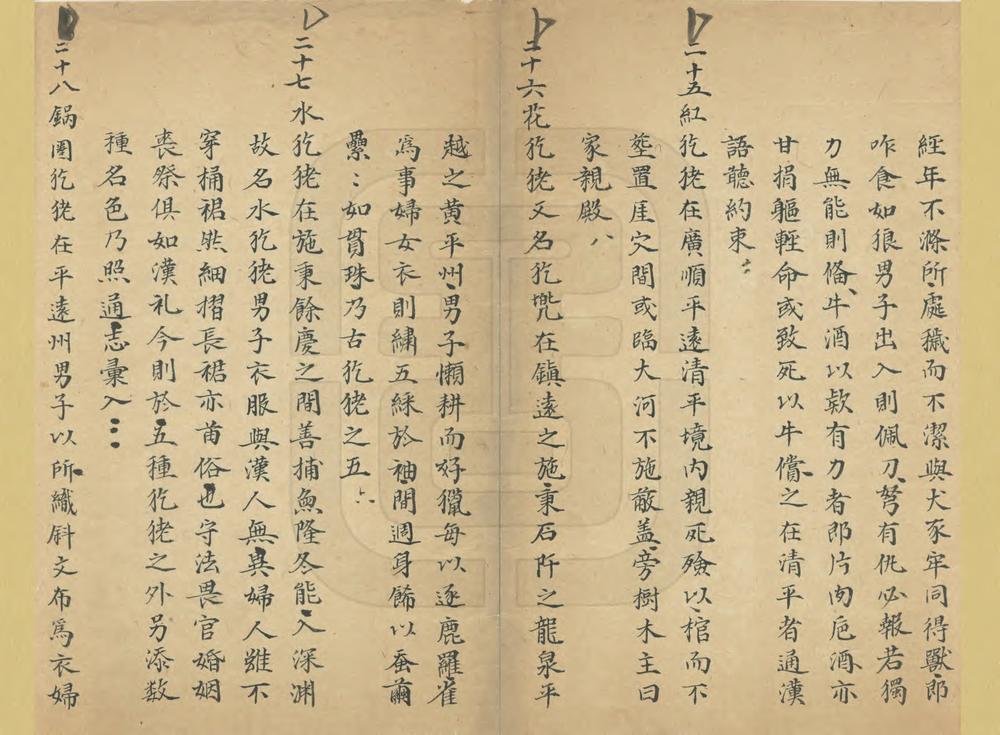 經年不滌所處穢而不潔與犬豕牢同得獸郎
咋食如狼男子出入則佩刀弩有仇必報若獨
力無能則俻牛酒以欵有力者郎片肉巵酒亦
甘捐軀輕命或致死以牛償之在清平者通漢
語聽約束
二十五紅犵狫在廣順平遠清平境內親死殮以棺而不
塟置厓穴間或臨大河不施蔽盖旁樹木主曰
家親殿
二十六花犵狫又名犵兠在鎮遠之施秉石阡之龍泉平
越之黃平州男子懶耕而好獵每以逐鹿羅雀
爲事婦女衣則繡五綵於袖間週身飾以蚕繭
纍：如貫珠乃古犵狫之五
二十七水犵狫在施秉餘慶之間善捕魚隆冬能入深渊
故名水犵狫男子衣服與漢人無異婦人雖不
穿桶裙然細摺長裾亦苗俗也守法畏官婚姻
喪祭俱如漢礼今則於五種犵狫之外另添数
種名色乃照通志彙入
二十八鍋圈犵狫在平遠州男子以所織斜文布爲衣婦